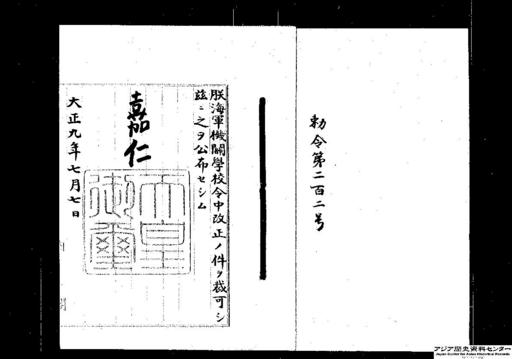 勅令第二百二号
朕海軍機關學校令中改正ノ件ヲ裁可シ
茲ニ之ヲ公布セシム
嘉仁
天皇御璽
大正九年七月七日
アジア歴史資料センター
Japan Center for Asian Historical Records